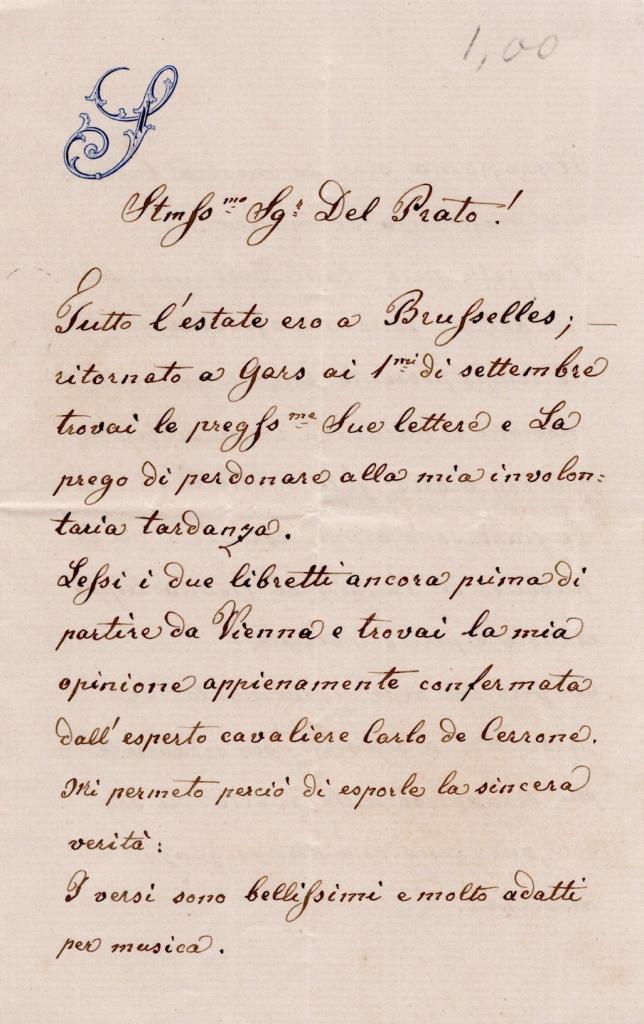 1,00
S
Stmſs.mo Sg.r Del Prato!
Tutto l'estate ero a Bruſselles; —
ritornato a Gars ai 1mi di settembre
trovai le pregſs.me Sue lettere e La
prego di perdonare alla mia involon:
taria tardanza.
Leſsi i due libretti ancora prima di
partire da Vienna e trovai la mia
opinione appienamente confermata
dall' esperto cavaliere Carlo de Cerrone.
Mi permeto perciò di esporle la sincera
verità:
I versi sono belliſsimi e molto adatti
per musica.